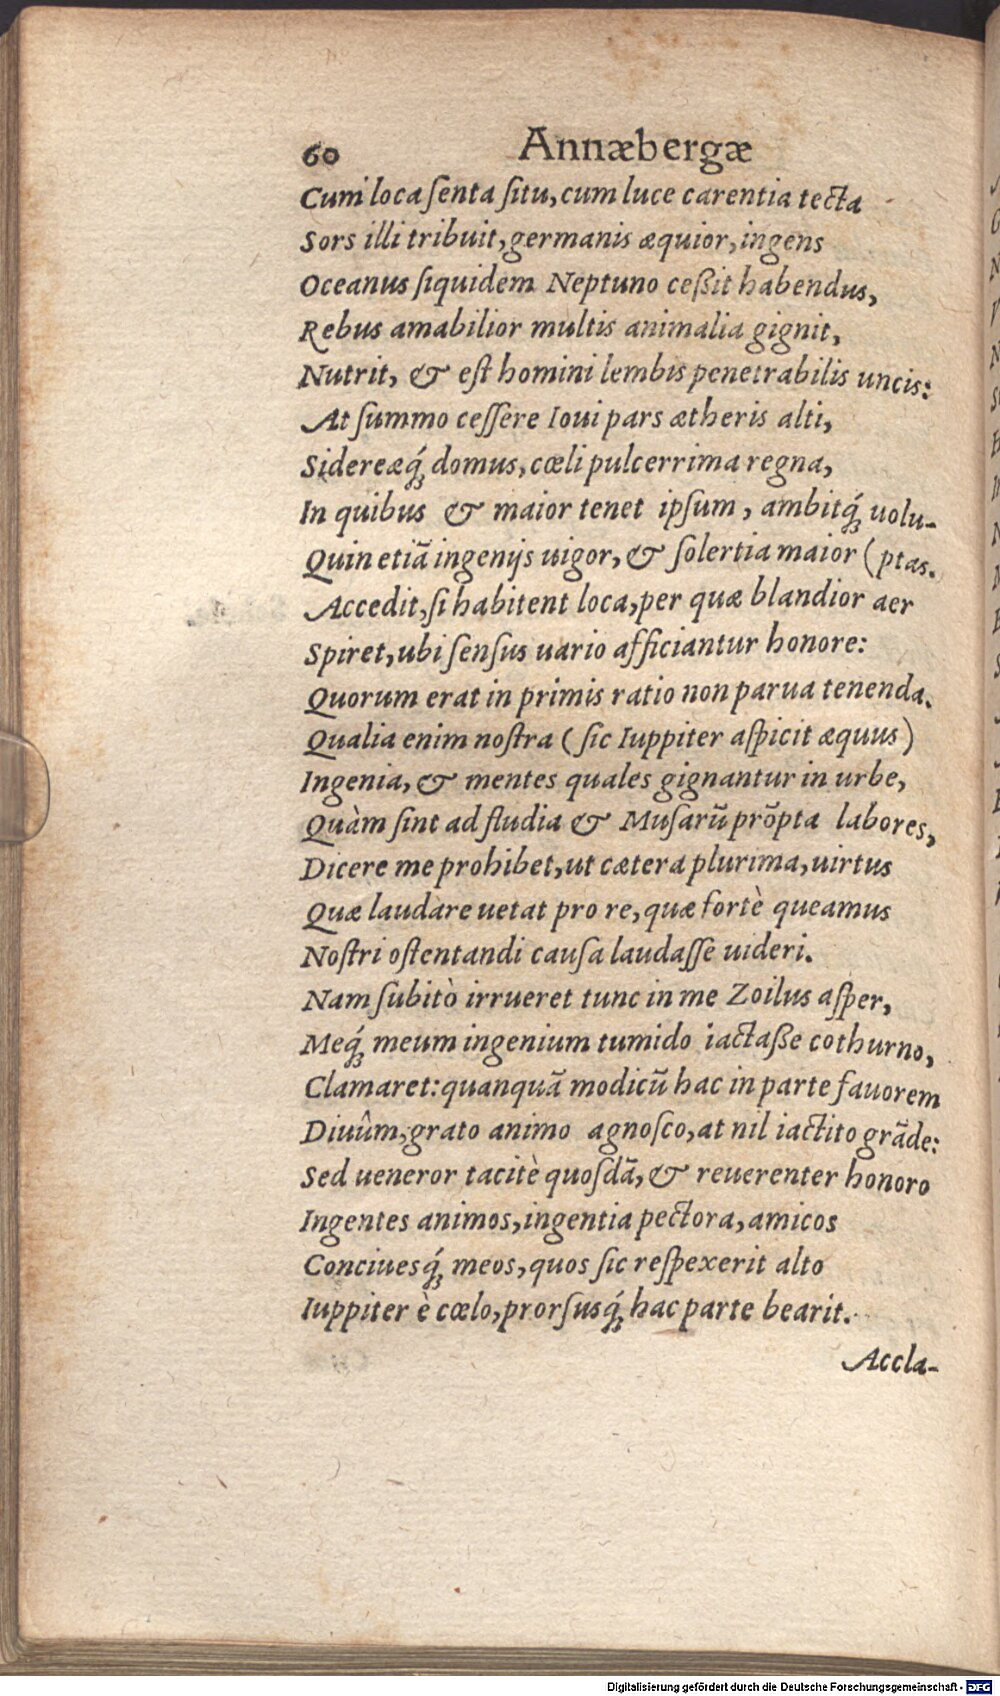 60 Annæbergæ
Cum loca ſenta ſitu, cum luce carentia tecta
Sors illi tribuit, germanis æquior, ingens
Oceanus ſiquidem Neptuno ceßit habendus,
Rebus amabilior multis animalia gignit,
Nutrit, & eſt homini lembis penetrabilis uncis:
At ſummo ceſſere Ioui pars ætheris alti,
Sidereæq́; domus, cœli pulcerrima regna,
In quibus & maior tenet ipſum, ambitq́; uolu-
Quin etiā ingenijs uigor, & ſolertia maior (ptas.
Accedit, ſi habitent loca, per quæ blandior aer
Spiret, ubi ſenſus uario afficiantur honore:
Quorum erat in primis ratio non parua tenenda.
Qualia enim noſtra (ſic Iuppiter aſpicit æquus)
Ingenia, & mentes quales gignantur in urbe,
Quàm ſint ad ſtudia & Muſarū prōpta labores,
Dicere me prohibet, ut cætera plurima, uirtus
Quæ laudare uetat pro re, quæ fortè queamus
Noſtri oſtentandi cauſa laudaſſe uideri.
Nam ſubitò irrueret tunc in me Zoilus aſper,
Meq́; meum ingenium tumido iactaße cothurno,
Clamaret: quanquā modicū hac in parte fauorem
Diuûm, grato animo agnoſco, at nil iactito grāde:
Sed ueneror tacitè quoſdā, & reuerenter honoro
Ingentes animos, ingentia pectora, amicos
Conciuesq́; meos, quos ſic reſpexerit alto
Iuppiter è cœlo, prorſusq́; hac parte bearit.
Accla-
Digitalisierung gefördert durch die Deutsche Forschungsgemeinschaft - DFG